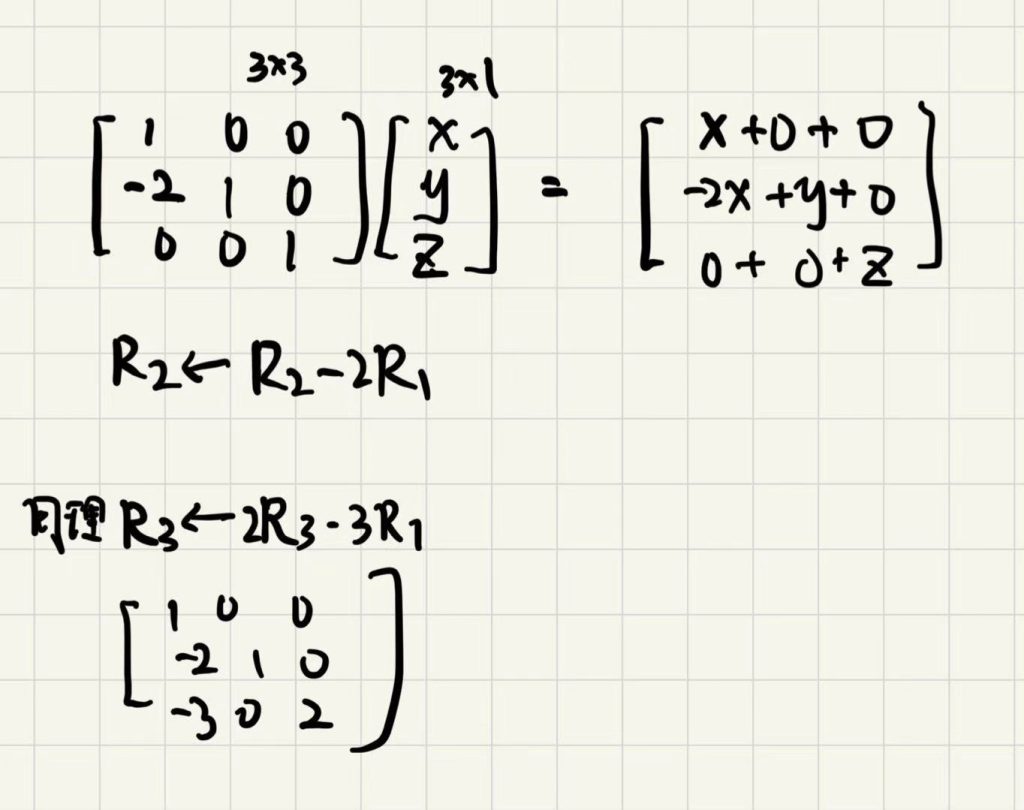 3×3 3×1
[1 0 0] [x] = [x+0+0]
[-2 1 0] [y] [-2x+y+0]
[0 0 1] [z] [0+0+z]
R₂←R₂-2R₁
同理 R₃←2R₃-3R₁
[1 0 0]
[-2 1 0]
[-3 0 2]